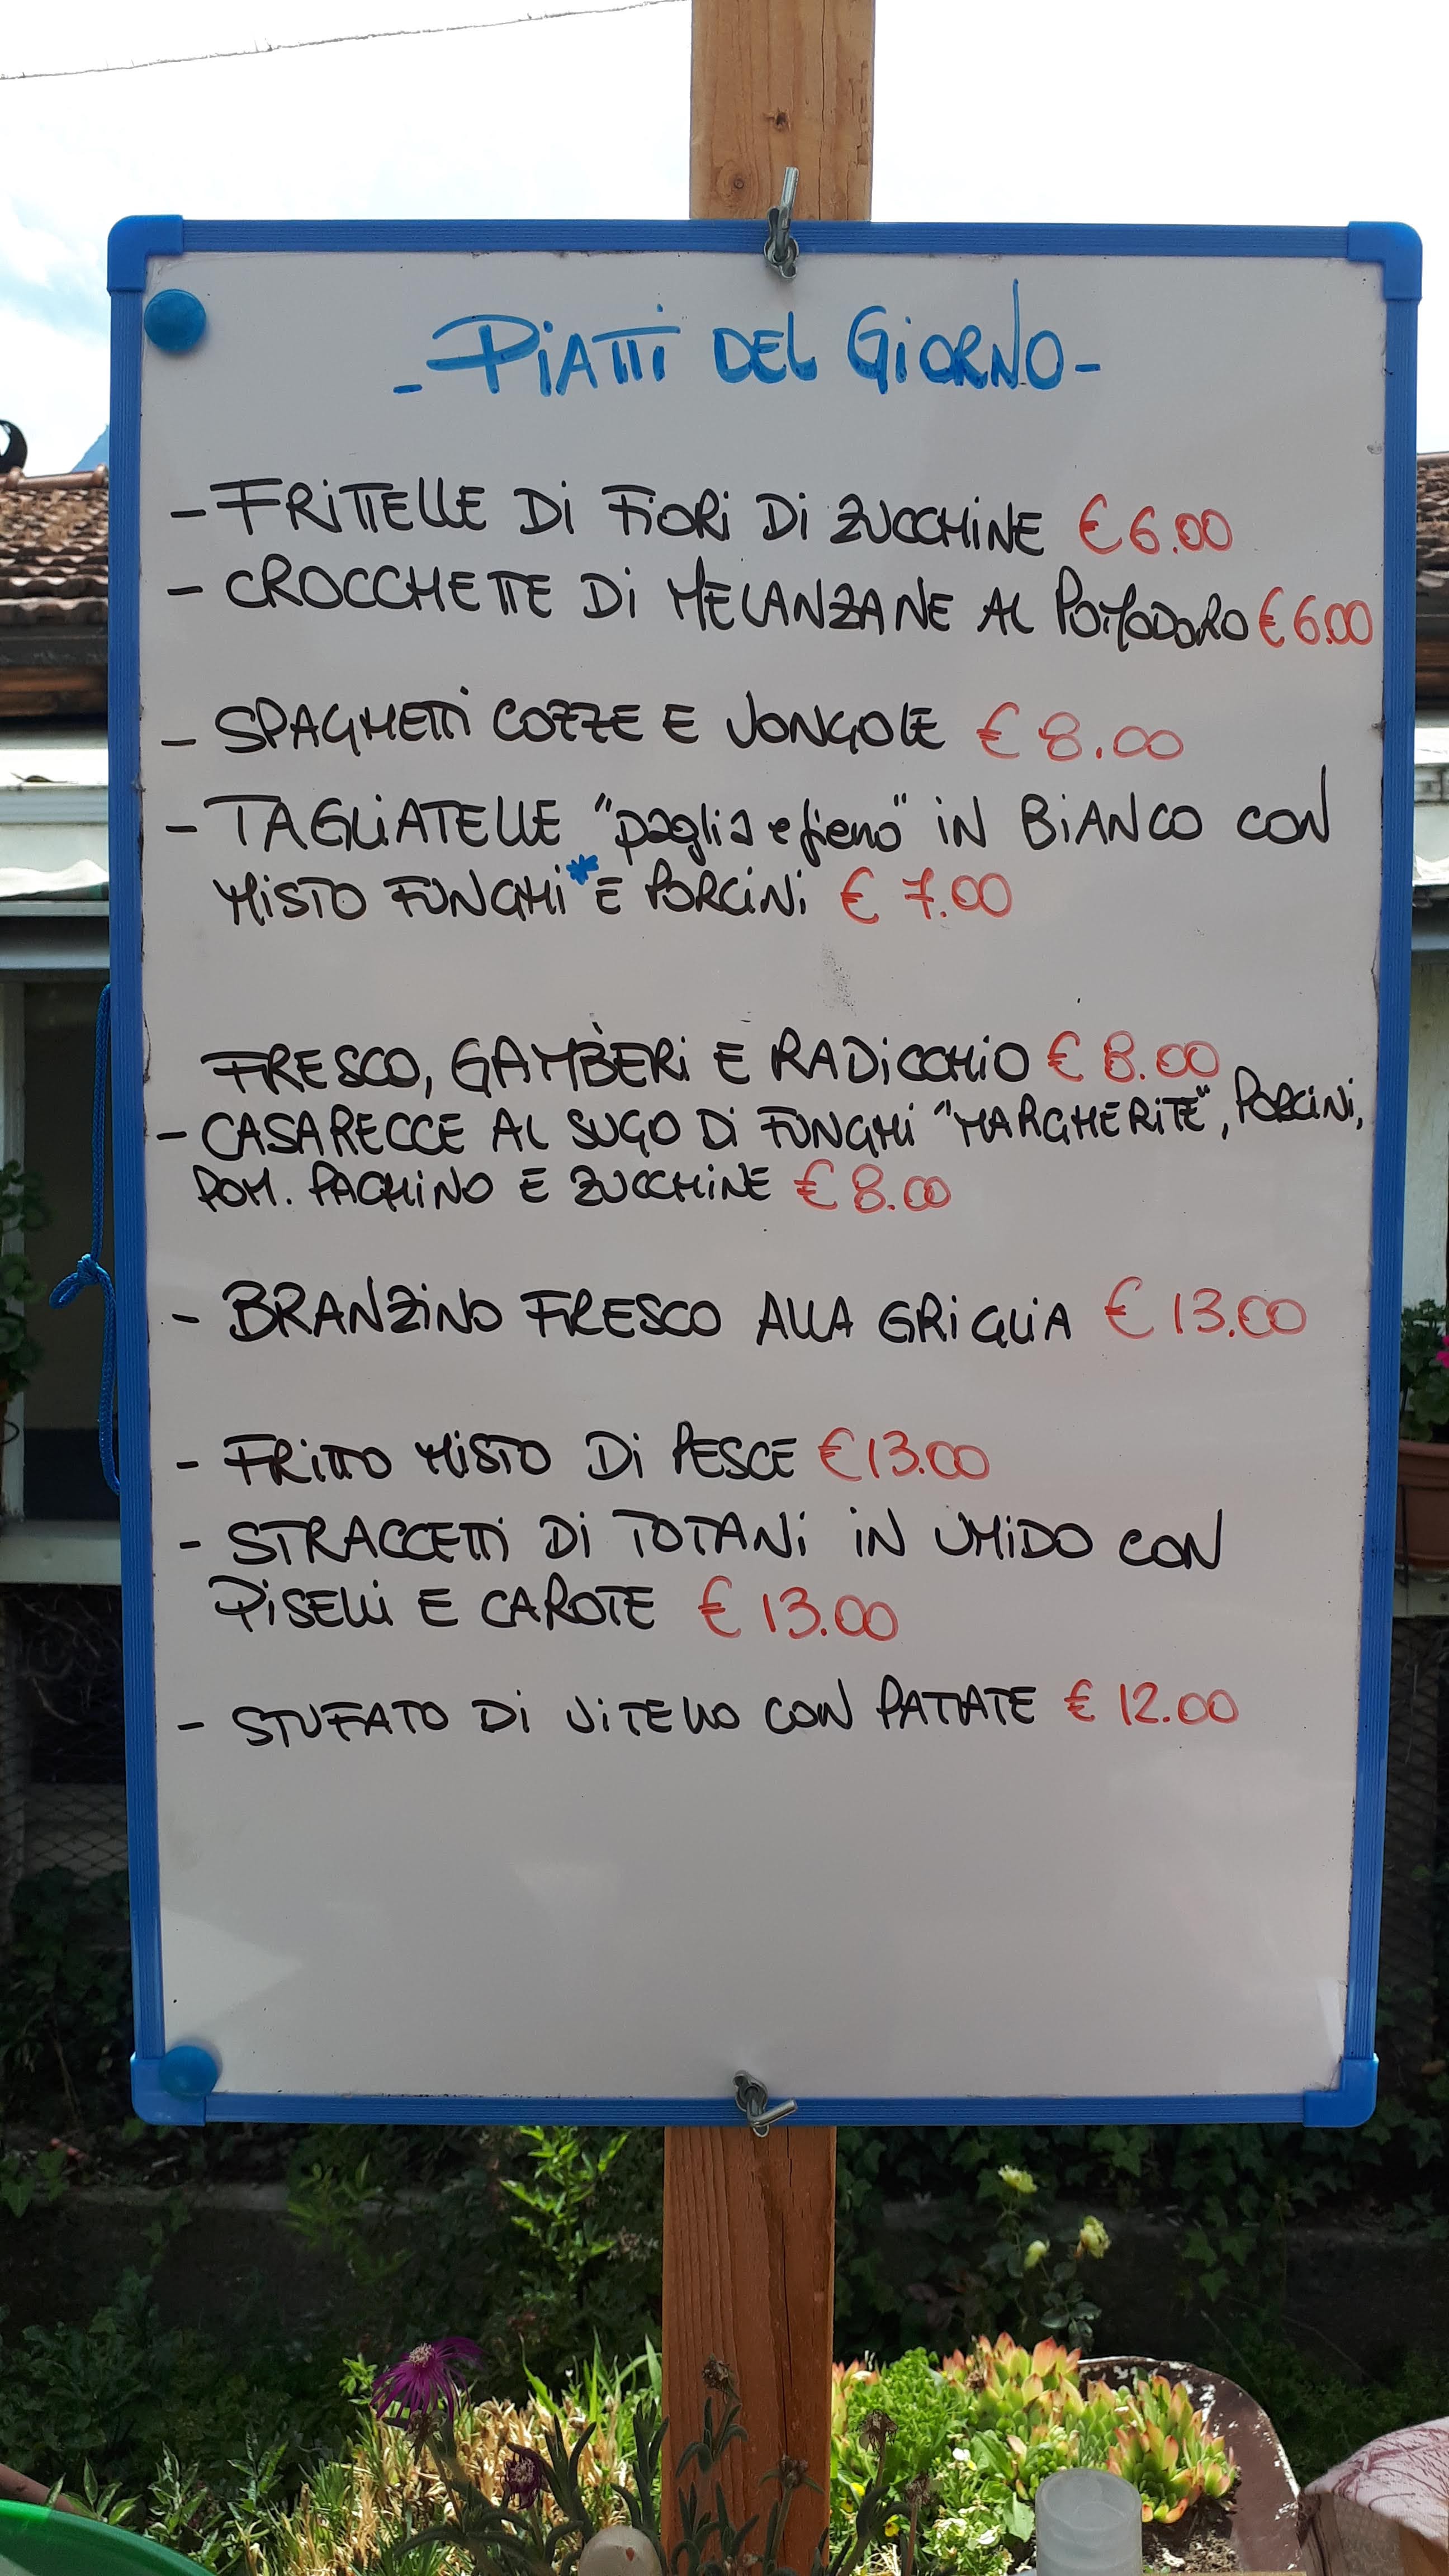 - PiATTi DEL GiORNO -
- FRiTTELLE Di FiORi Di ZUCCHiNE € 6.00
- CROCCHETTE Di MELANZANE AL POMODORO € 6.00
- SPAGHETTi COZZE E VONGOLE € 8.00
- TAGLiATELLE "paglia e fieno" iN BiANCO CON
MiSTO FUNGHi* E PORCiNi € 7.00
FRESCO, GAMBERi E RADiCCHiO € 8.00
- CASARECCE AL SUGO Di FUNGHi "MARGHERiTE", PORCiNi,
POM. PACHiNO E ZUCCHiNE € 8.00
- BRANZiNO FRESCO ALLA GRiGLiA € 13.00
- FRiTTO MiSTO Di PESCE € 13.00
- STRACCETTi Di TOTANi iN UMiDO CON
PiSELLi E CAROTE € 13.00
- STUFATO Di ViTELLO CON PATATE € 12.00